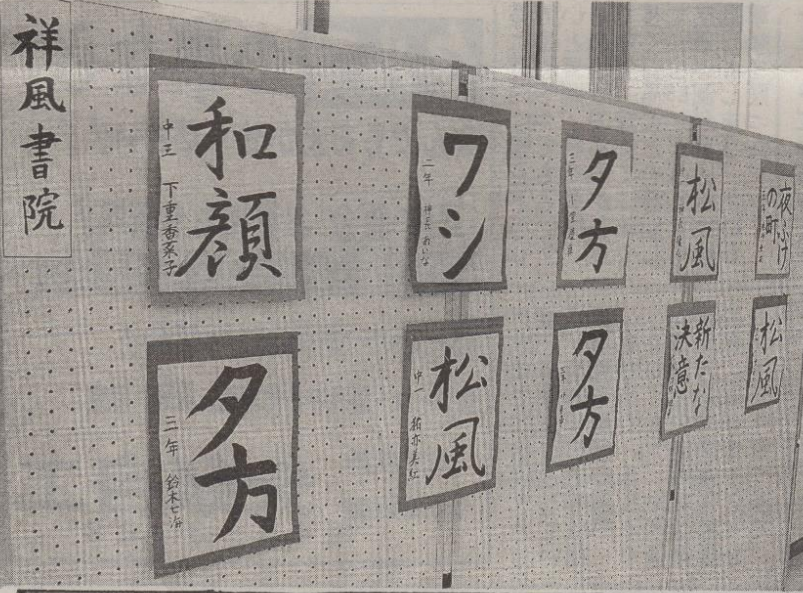 祥風書院
和顔
中三 下重香菜子
ワシ
二年
夕方
三年
松風
夜ふけの町
夕方
三年 鈴木七海
松風
中一
夕方
新たな決意
松風